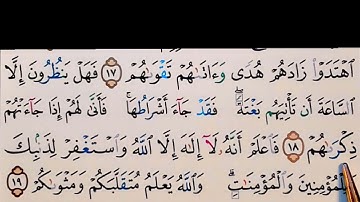 ٱهْتَدَوْا۟ زَادَهُمْ هُدًى وَءَاتَىٰهُمْ تَقْوَىٰهُمْ ١٧ فَهَلْ يَنظُرُونَ إِلَّا
ٱلسَّاعَةَ أَن تَأْتِيَهُم بَغْتَةً ۖ فَقَدْ جَآءَ أَشْرَاطُهَا ۚ فَأَنَّىٰ لَهُمْ إِذَا جَآءَتْهُمْ
ذِكْرَىٰهُمْ ١٨ فَٱعْلَمْ أَنَّهُۥ لَآ إِلَٰهَ إِلَّا ٱللَّهُ وَٱسْتَغْفِرْ لِذَنۢبِكَ
وَلِلْمُؤْمِنِينَ وَٱلْمُؤْمِنَٰتِ ۗ وَٱللَّهُ يَعْلَمُ مُتَقَلَّبَكُمْ وَمَثْوَىٰكُمْ ١٩